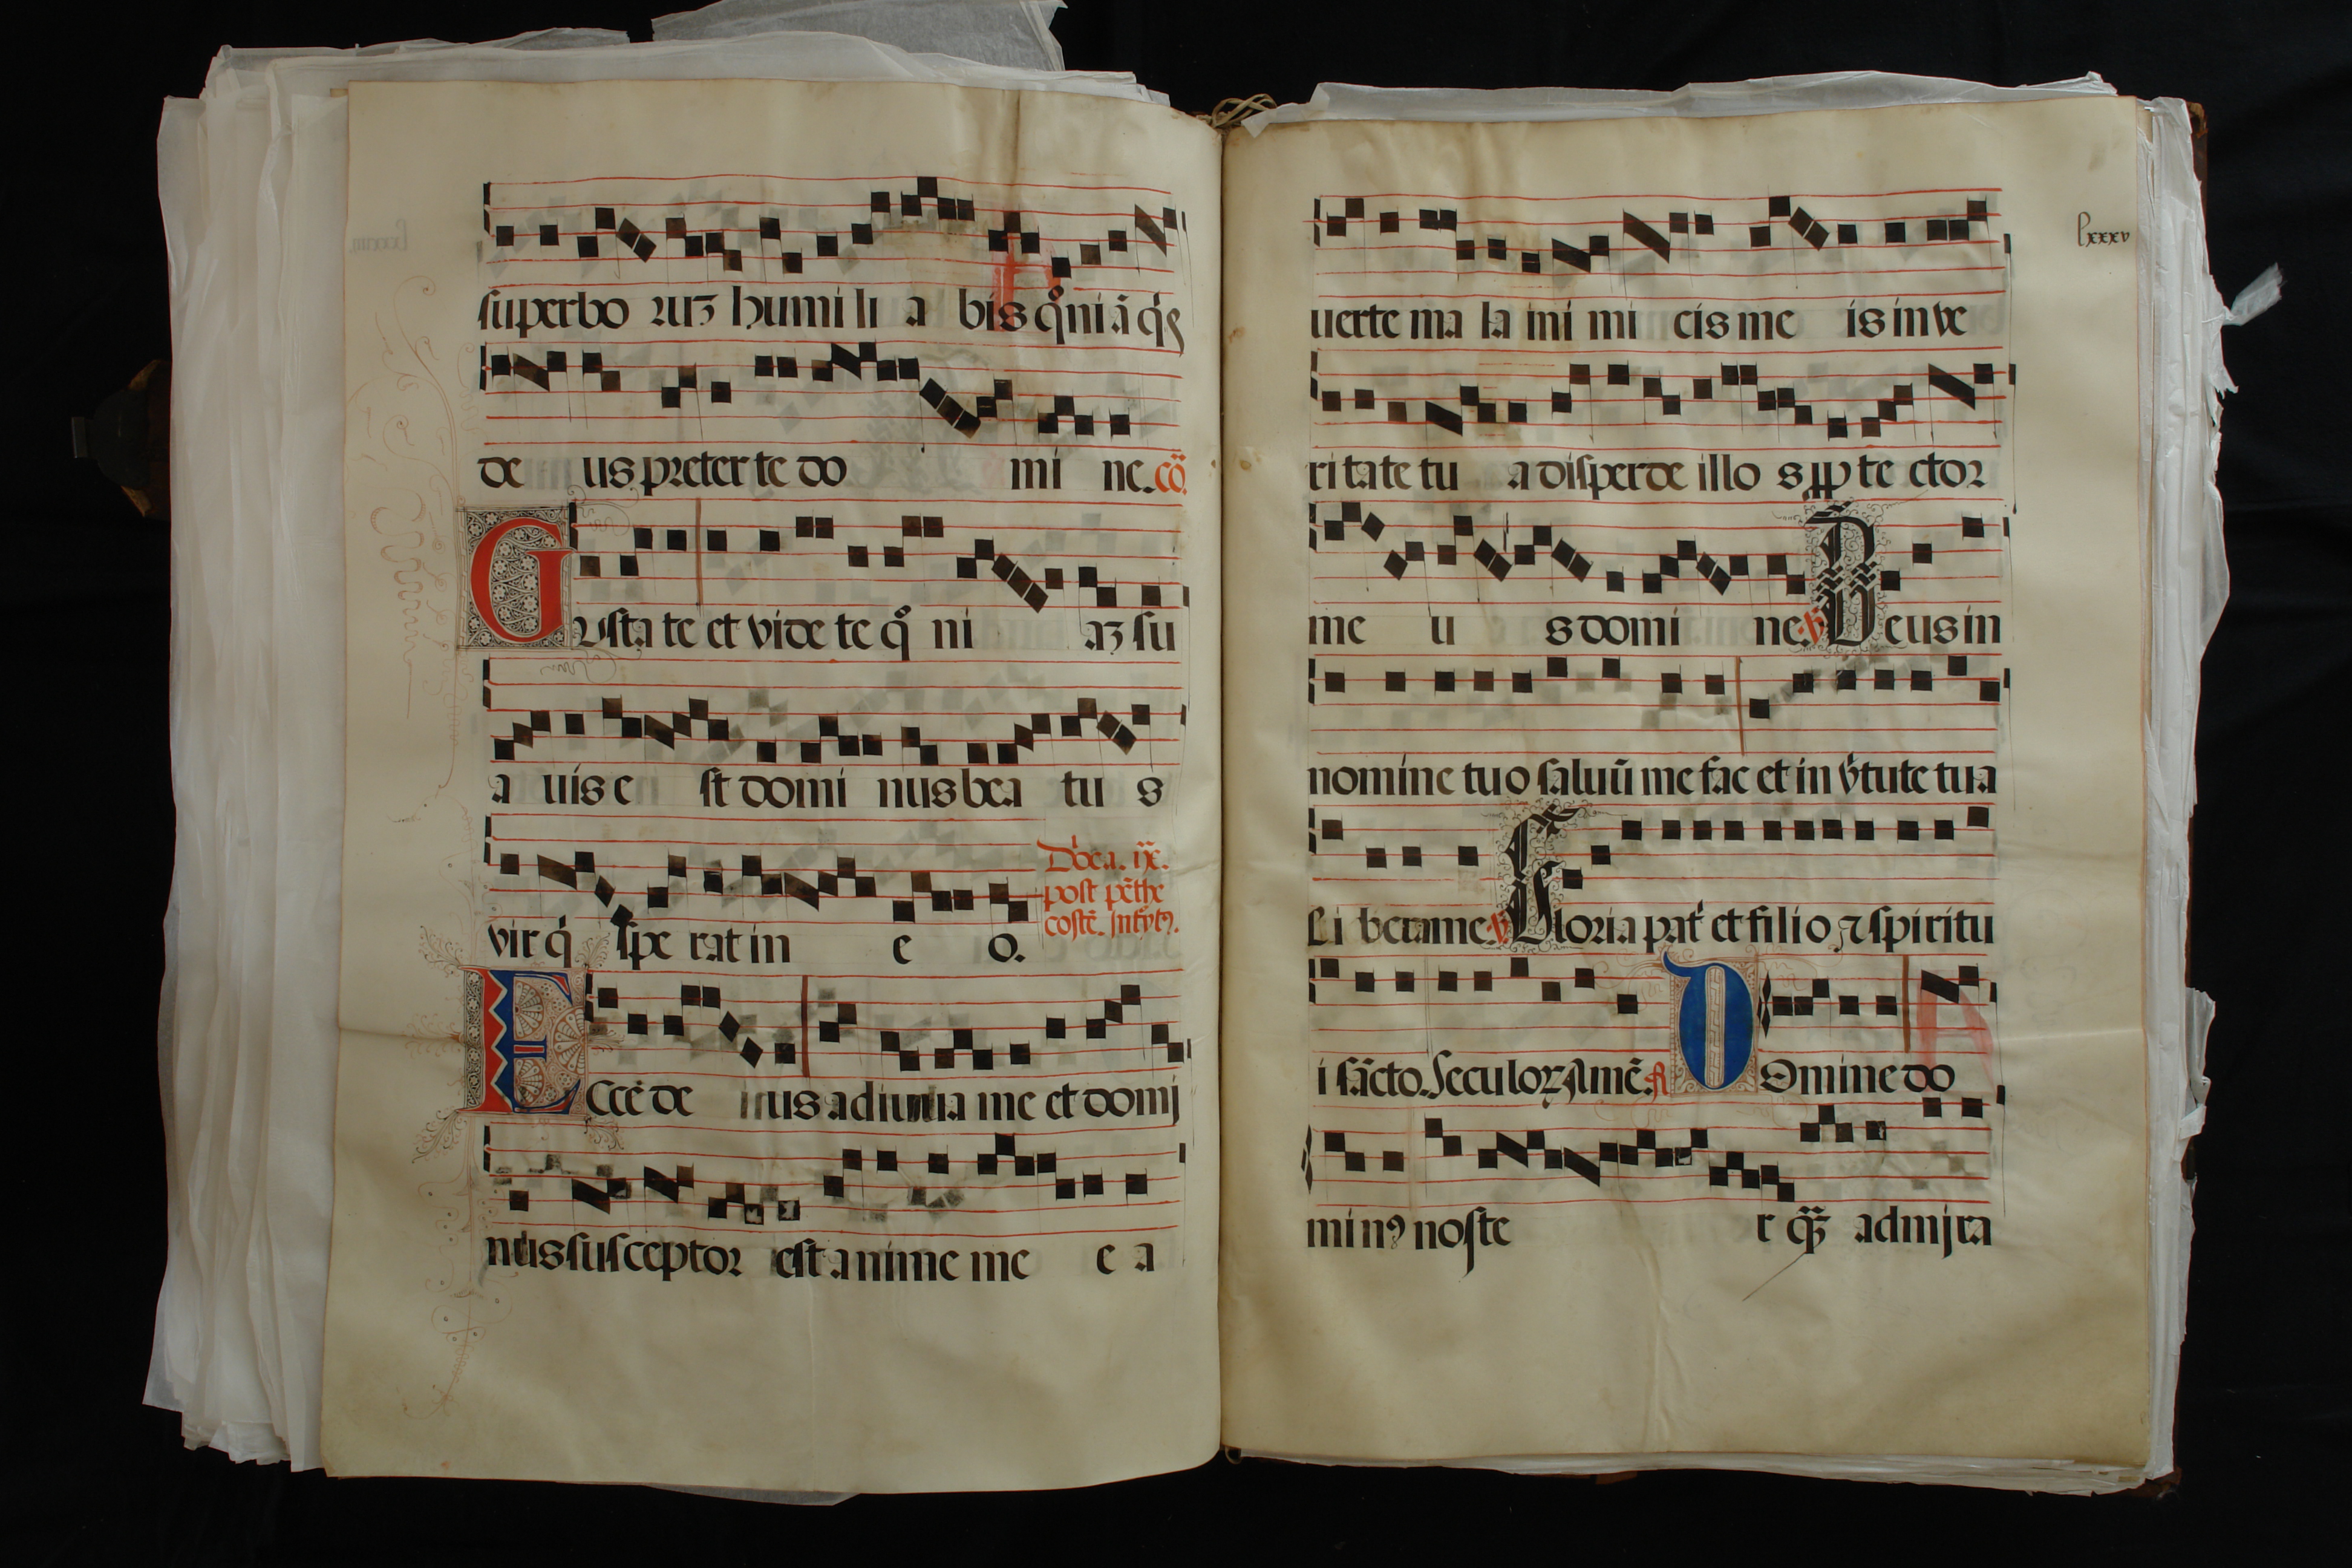 superbo rum humi li a bis qͦniā q̇s
de us preter te do mi ne. cō
Gusta te et vide te qͦ ni aʒ su
a uis e st domi nus bea tu s
vir q̇ spe rat in e o.
Dn̄ca. ix.
post pēthe
costē. Intͬytꝰ.
Ecce de us adiuua me et domj
nus susceptor est anime me e a
lxxxv
uerte ma la ini mi cis me is in ve
ritate tu a disperde illo s ꝓ te ctor
me u s domi ne. ℣ Deus in
nomine tuo saluū me fac et in v̇tute tua
Li bera me. ℣ Gloria pat̾ et filio ⁊ spiritu
i sācto. Seculoꝝ Amē. A Domine do
min⁹ noste r qȝ̄ admjra